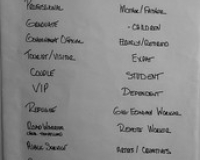 Professional
Graduate
Government Official
Tourist/Visitor
Couple
VIP
Refugee
Road Warrior
Public Service
Mother/Father
- Children
Elderly/Retired
Expat
Student
Dependent
Gig Economy Worker
Remote Worker
Artist/Creatives